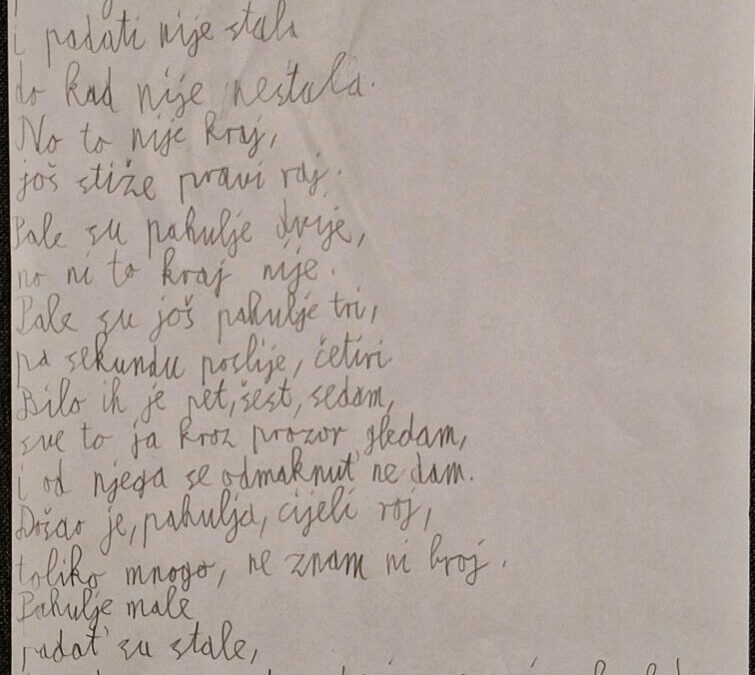 i padati nije stala
do kad nije nestala.
No to nije kraj,
još stiže pravi raj.
Pale su pahulje dvije,
no ni to kraj nije.
Pale su još pahulje tri,
pa sekundu poslije, četiri.
Bilo ih je pet, šest, sedam,
sve to ja kroz prozor gledam,
i od njega se odmaknut' ne dam.
Došao je, pahulja, cijeli roj,
toliko mnogo, ne znam ni broj.
Pahulje male
padat' su stale,